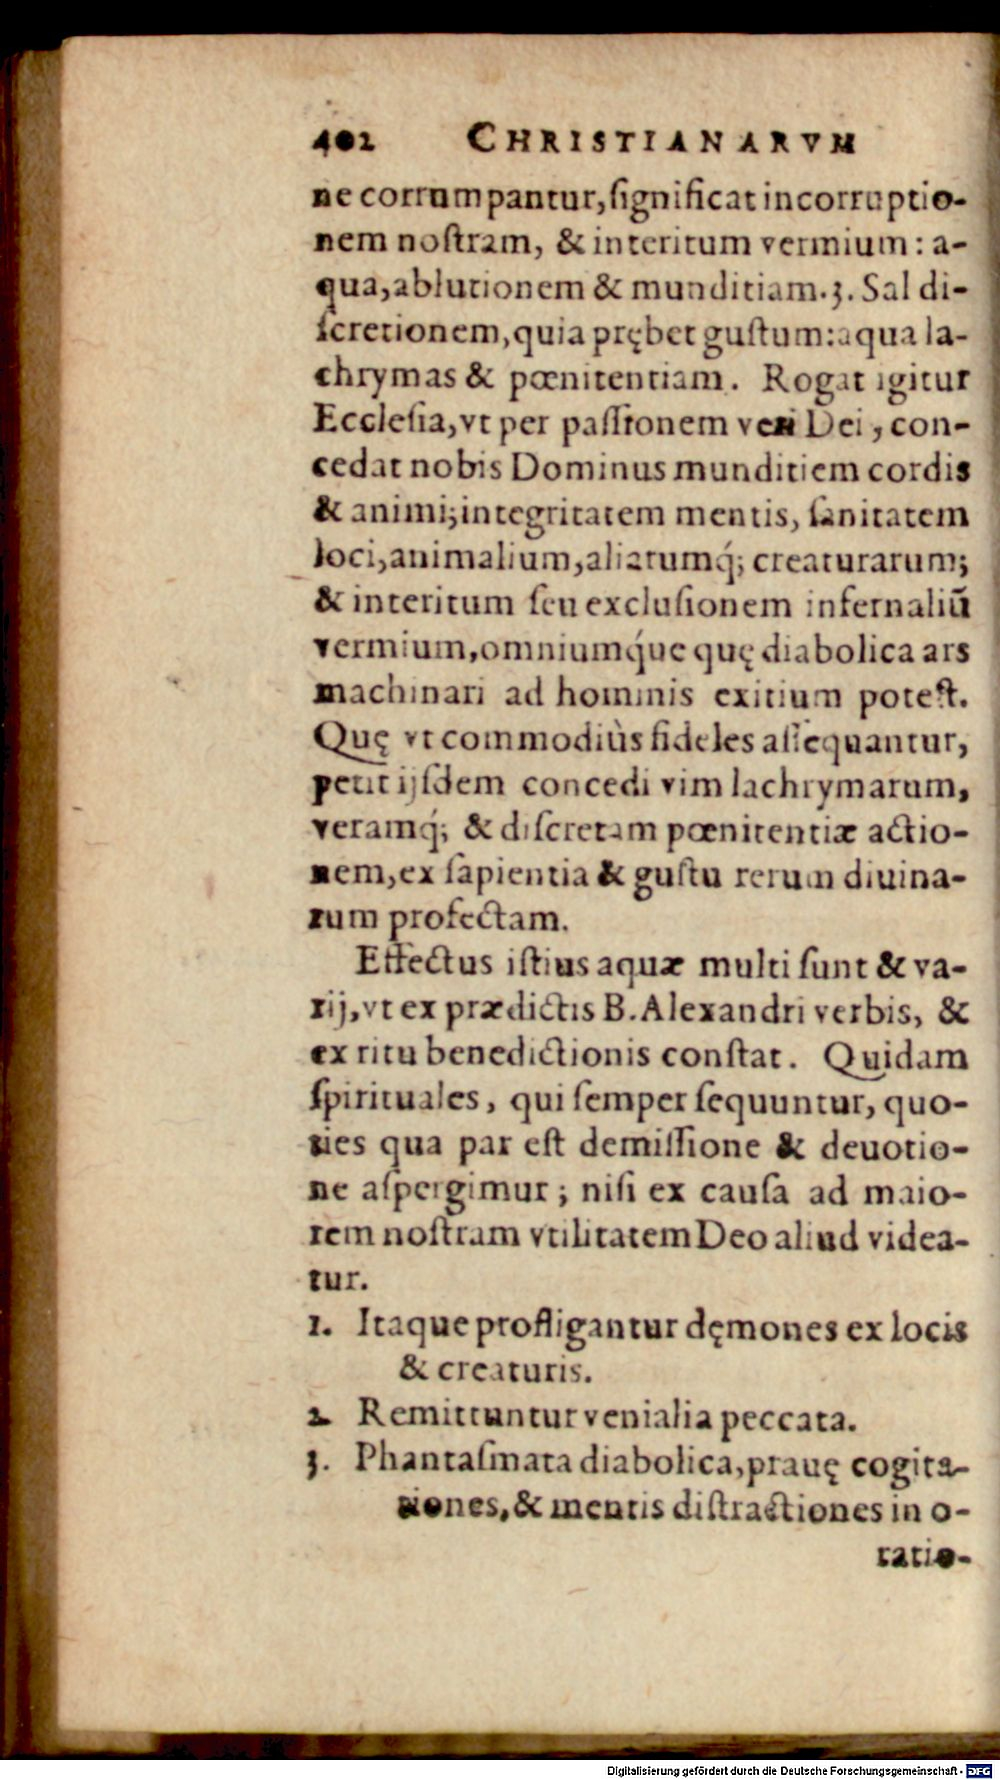 402 CHRISTIANARVM
ne corrumpantur, ſignificat incorruptio-
nem noſtram, & interitum vermium: a-
qua, ablutionem & munditiam. 3. Sal di-
ſcretionem, quia prębet guſtum: aqua la-
chrymas & pœnitentiam. Rogat igitur
Eccleſia, vt per paſſionem veri Dei, con-
cedat nobis Dominus munditiem cordis
& animi; integritatem mentis, ſanitatem
loci, animalium, aliarumq́; creaturarum;
& interitum ſeu excluſionem infernaliũ
vermium, omniumq́ue quę diabolica ars
machinari ad hominis exitium poteſt.
Quę vt commodiùs fideles aſſequantur,
petit ijſdem concedi vim lachrymarum,
veramq́; & diſcretam pœnitentiæ actio-
nem, ex ſapientia & guſtu rerum diuina-
rum profectam.
Effectus iſtius aquæ multi ſunt & va-
rij, vt ex prædictis B. Alexandri verbis, &
ex ritu benedictionis conſtat. Quidam
ſpirituales, qui ſemper ſequuntur, quo-
ties qua par eſt demiſſione & deuotio-
ne aſpergimur; niſi ex cauſa ad maio-
rem noſtram vtilitatem Deo aliud videa-
tur.
1. Itaque profligantur dęmones ex locis
& creaturis.
2. Remittuntur venialia peccata.
3. Phantaſmata diabolica, prauę cogita-
tiones, & mentis diſtractiones in o-
ratio-
Digitalisierung gefördert durch die Deutsche Forschungsgemeinschaft - DFG